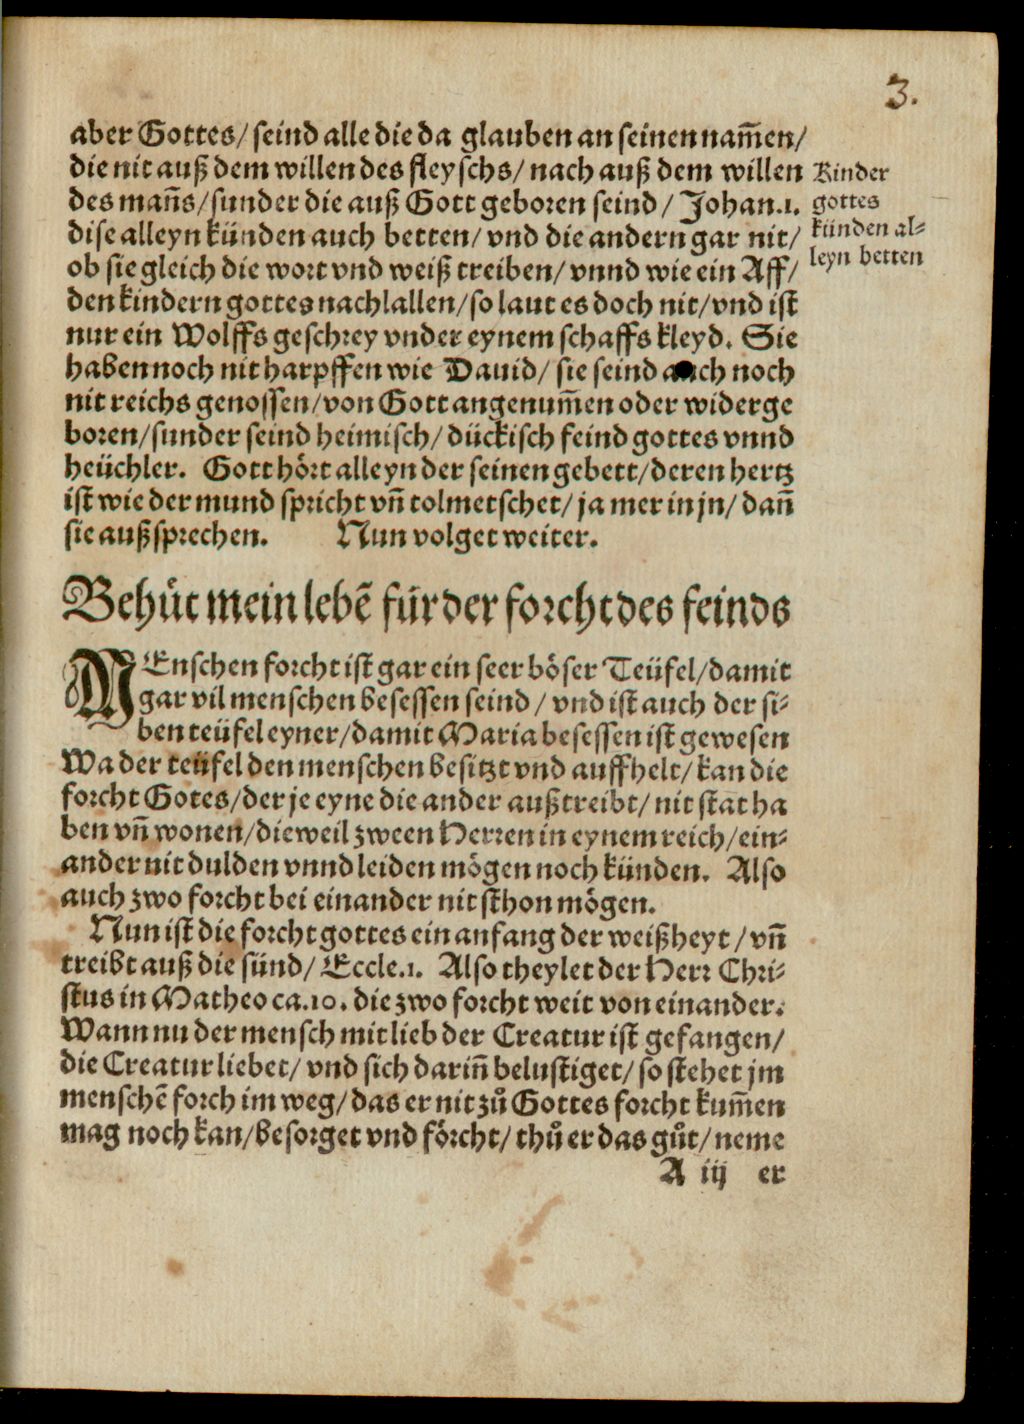 3.
aber Gottes/ seind alle die da glauben an seinen nam̃en/
die nit auß dem willen des fleyschs/ nach auß dem willen
des mañs/ sunder die auß Gott geboren seind/ Johan.1.
dise alleyn künden auch betten/ vnd die andern gar nit/
ob sie gleich die wort vnd weiß treiben/ vnnd wie ein Aff/
den kindern gottes nachlallen/ so laut es doch nit/ vnd ist
nur ein Wolffs geschrey vnder eynem schaffs kleyd. Sie
haben noch nit harpffen wie Dauid/ sie seind auch noch
nit reichs genossen/ von Gott angenum̃en oder widerge
boren/ sunder seind heimisch/ dückisch feind gottes vnnd
heüchler. Gott hört alleyn der seinen gebett/ deren hertz
ist wie der mund spricht vñ tolmetschet/ ja mer in jn/ dañ
sie außsprechen. Nun volget weiter.
Kinder
gottes
künden al⸗
leyn betten
Behuͤt mein lebẽ für der forcht des feinds
MEnschen forcht ist gar ein seer böser Teüfel/ damit
gar vil menschen besessen seind/ vnd ist auch der si⸗
ben teüfel eyner/ damit Maria besessen ist gewesen
Wa der teüfel den menschen besitzt vnd auffhelt/ kan die
forcht Gotes/ der je eyne die ander außtreibt/ nit stat ha
ben vñ wonen/ dieweil zween Herren in eynem reich/ ein⸗
ander nit dulden vnnd leiden mögen noch künden. Also
auch zwo forcht bei einander nit sthon mögen.
Nun ist die forcht gottes ein anfang der weißheyt/ vñ
treibt auß die sünd/ Eccle.1. Also theylet der Herr Chri⸗
stus in Matheo ca.10. die zwo forcht weit von einander.
Wann nu der mensch mit lieb der Creatur ist gefangen/
die Creatur liebet/ vnd sich dariñ belustiget/ so stehet jm
menschẽ forch im weg/ das er nit zů Gottes forcht kum̃en
mag noch kan/ besorget vnd förcht/ thů er das gůt/ neme
A iij er